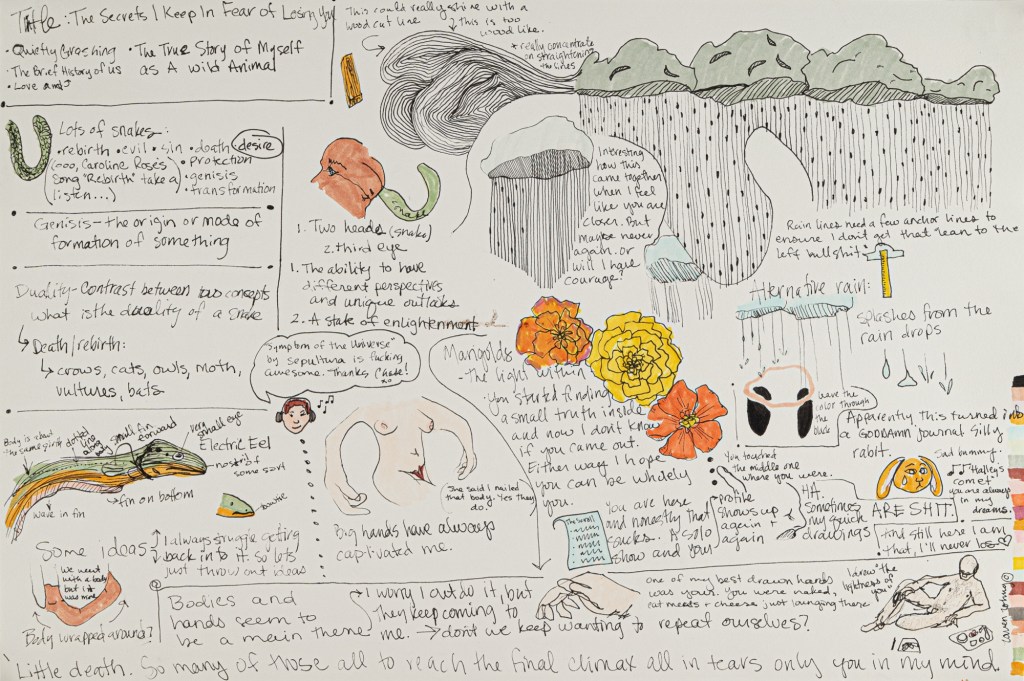 Title: The Secrets I Keep In Fear of Losing You
• Quietly Grashing • The True Story of Myself
as A wild Animal
• The Brief History of us
• Love and
This could really shine with a
wood cut line
↓ this is too
wood like.
* really concentrate
on straightening
the lines
Lots of snakes:
• rebirth • evil • sin • death • desire
(ooo, Caroline Roses
Song "Rebirth" take a
listen...)
• protection
• genisis
• transformation
Genisis – the origin or mode of
formation of something
Duality – Contrast between two concepts
what is the duality of a snake
↳ Death/rebirth:
↳ crows, cats, owls, moth,
vultures, bats
snake
1. Two heads (snake)
2. third eye
1. The ability to have
different perspectives
and unique outlooks
2. A state of enlightenment
Interesting
how this
came together
when I feel
like you are
closer. But
maybe never
again. or
will I have
courage?
Rain lines need a few anchor lines to
ensure I don't get that "lean to the
left bullshit"
Alternative rain:
splashes from the
rain drops
leave the
color through
the black
Apparently, this turned into
a GODDAMN Journal silly
rabit.
Sad bunny.
"Halley's
comet"
you are always
in my
dreams.
ARE SHIT.
And still here I am
that, I'll never lose
"Symptom of the Universe"
by Sepultura is fucking
awesome. Thanks Chase!
xo
Marigolds
- The light within
- You started finding
a small truth inside
and now I don't know
if you came out.
Either way I hope
you can be whdely
you.
You touched
the middle one
where you were.
The Scroll
You are here
and honestly that
sucks. A solo
show and you!
profile
shows up
again +
again
HA.
Sometimes
my quick
drawings
Body is about
the same girth
dotted
line
along
body
small fin
forward
very
small eye
Electric Eel
nostril of
some sort
wave in fin
fin on bottom
She said I nailed
that body. Yes they
do.
Big hands have always
captivated me.
Some ideas:
I always struggle getting
back into it. So lots
just throw out ideas
We went
with a body
but it
was mine
Body wrapped around?
Bodies and
hands seem to
be a main theme
I worry I out do it, but
they keep coming to
me. → don't we keep wanting to repeat ourselves?
one of my best drawn hands
was yours. You were naked,
eat meets + cheese just lounging there
I draw "the
lightness of
you"
Little death. So many of those all to reach the final climax all in tears only you in my mind.